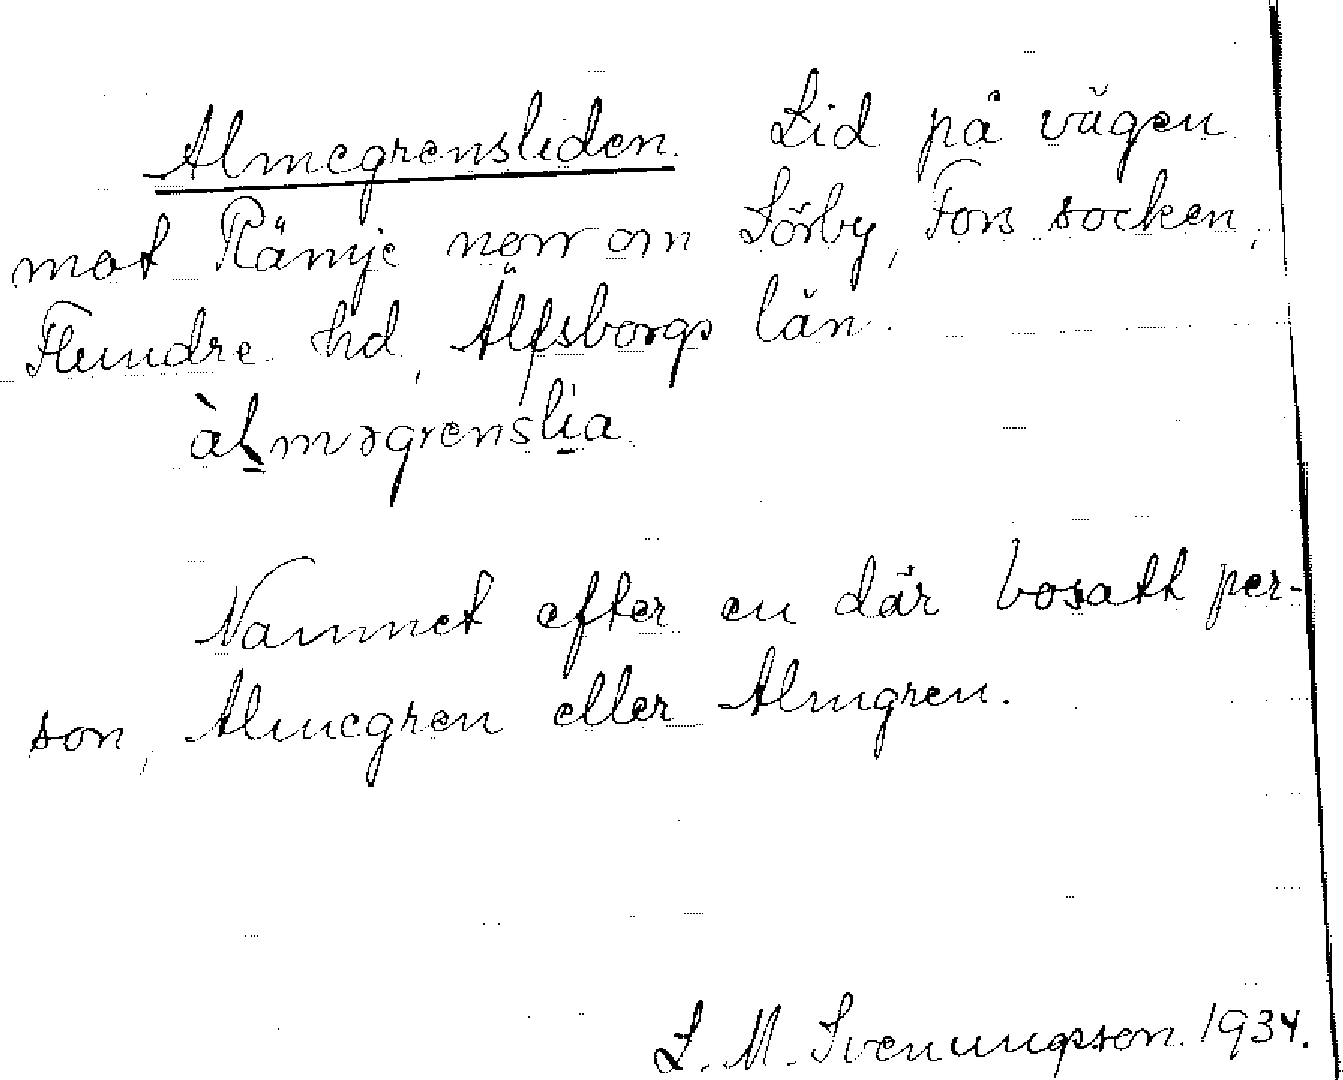 Almegrensliden. Lid på vägen
mot Rämje norr om Sörby, Fors socken,
Flundre hd, Älfsborgs län.
àlməgrenslia.
Namnet efter en där bosatt per-
son, Almegren eller Almgren.
L. M. Svenungsson. 1934.